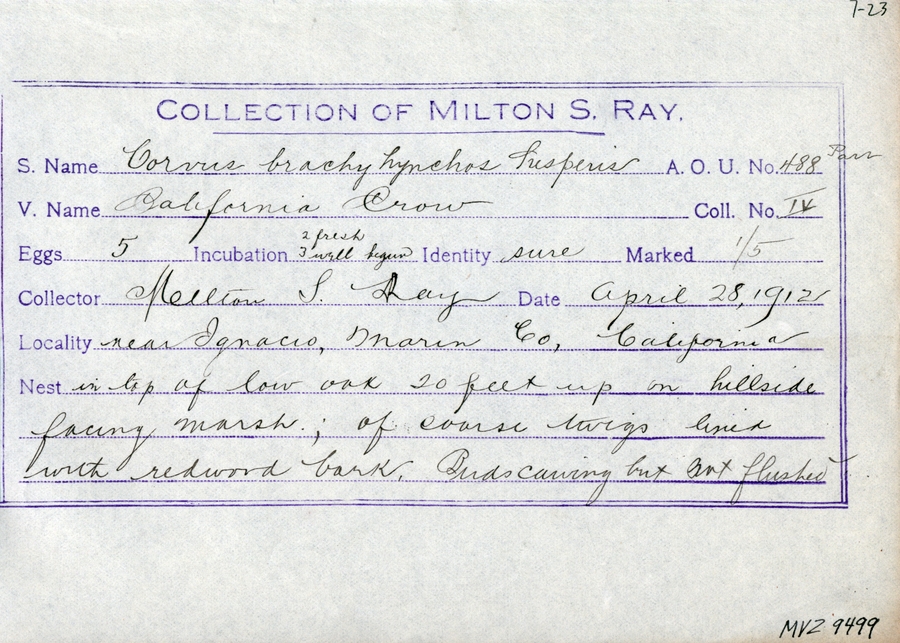 7-23
COLLECTION OF MILTON S. RAY.
S. Name Corvus brachyhynchos hesperis A. O. U. No. 488 Parr
V. Name California Crow Coll. No. IV
Eggs 5 Incubation 2 fresh 3 well begun Identity sure Marked 1/5
Collector Milton S. Ray Date April 28, 1912
Locality near Ignacio, Marin Co, California
Nest in top of low oak 20 feet up on hillside
facing marsh.; of coarse twigs lined
with redwood bark. Birds cawing but not flushed
MVZ 9499